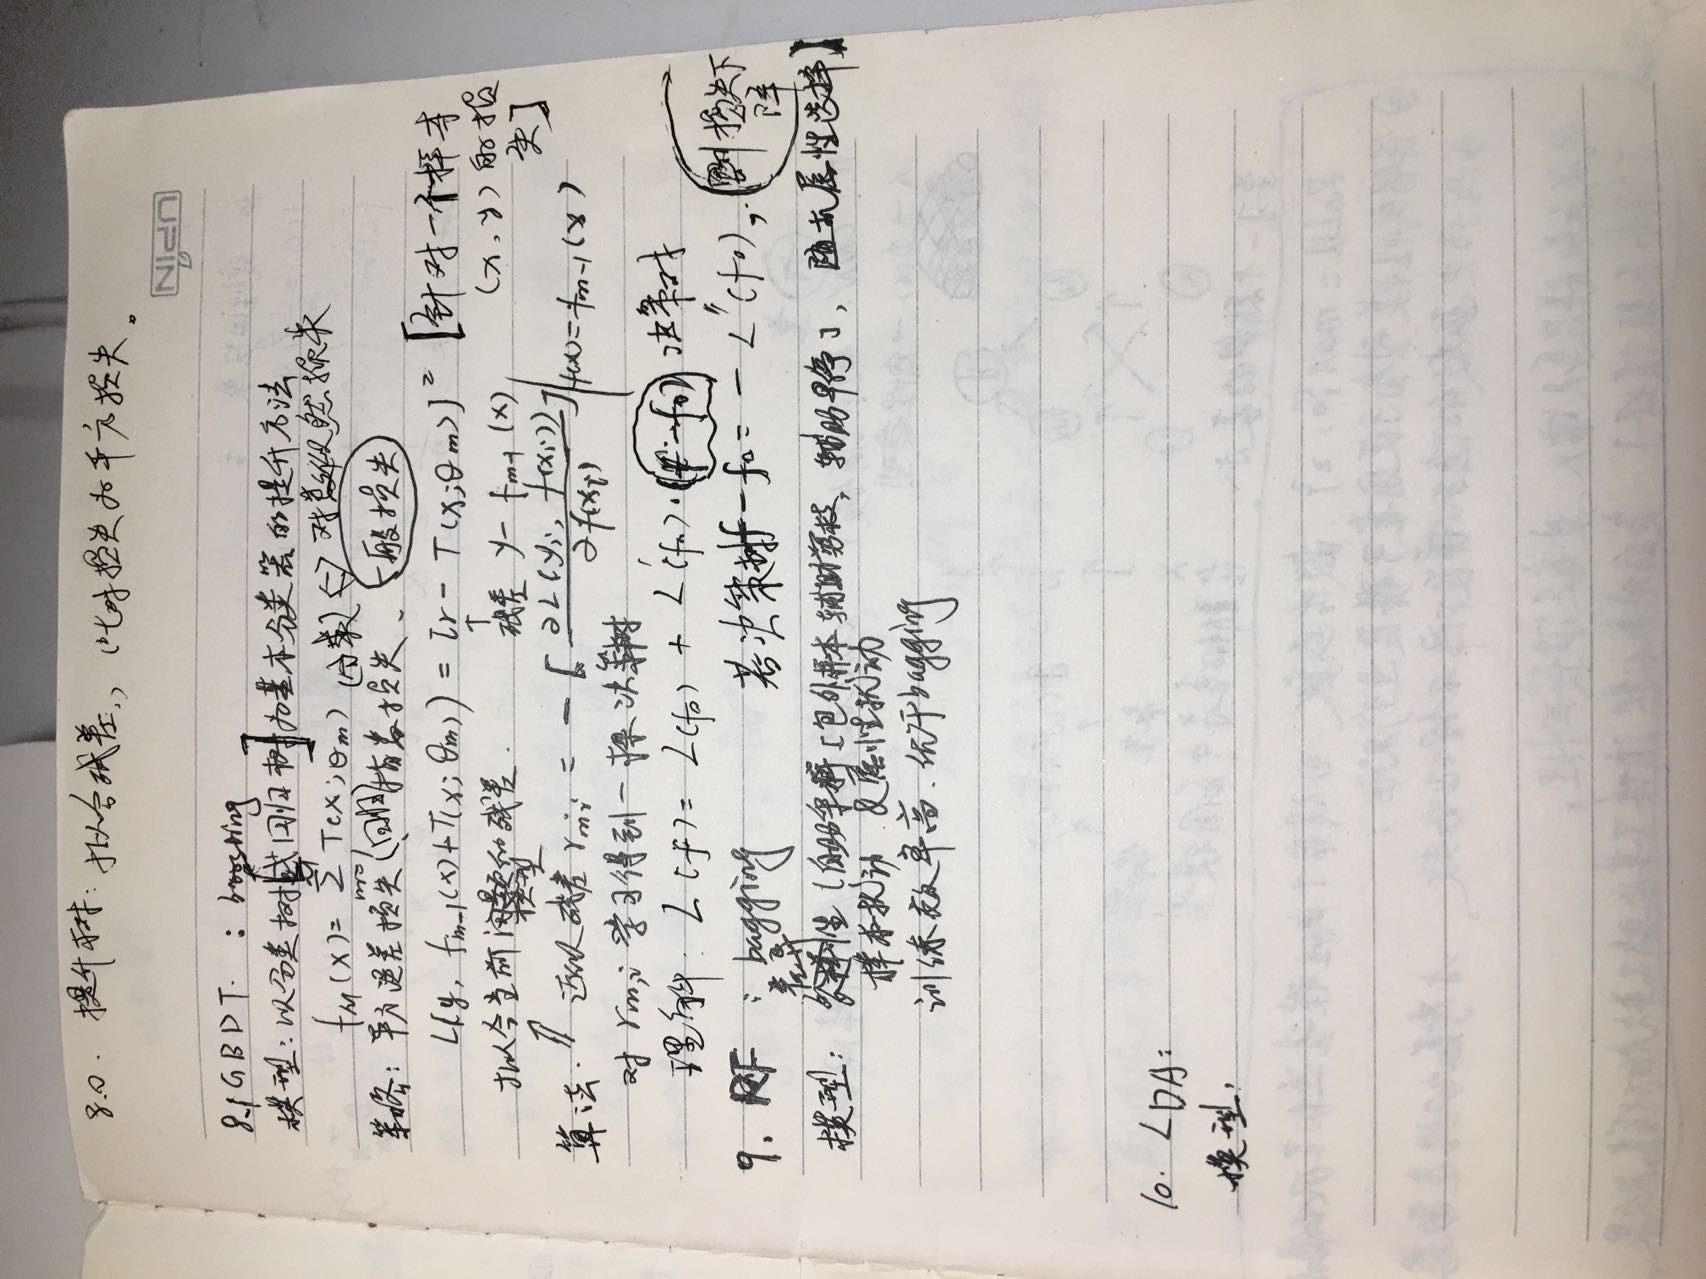 8.0. 提升树: 拟合残差, 此时损失为平方损失。
UPIN
8.1 GBDT. : boosting
模型: 以分类树[或回归树]为基本分类器的提升方法
fM(x)= Σ T(x;θm) (分类) <-> 对数似然损失
m=0
策略: 平方误差损失(回归)指数损失、一般损失
L(y, fm-1(x)+T(x;θm)) = [r - T(x;θm)]² [针对一个样本
(x,y)的损
失]
拟合当前模型的残差. ↑ 残差 y - fm-1(x)
算法. 近似残差 rm,i = -[∂L(yi, f(xi))/∂f(xi)]|f(x)=fm-1(x)
对 rm,i 学习得到一棵决策树
理解. L(f)= L(f0) + L'(f0)·(f-f0) 决策树
若决策树f-f0=-L'(f0), 则损失下
降
9. RF : bagging
差异
模型: 性(自助采样[包外样本辅助剪枝, 辅助早停], 随机属性选择]
样本扰动 及属性扰动
训练效率高. 优于bagging
10. LDA:
模型: